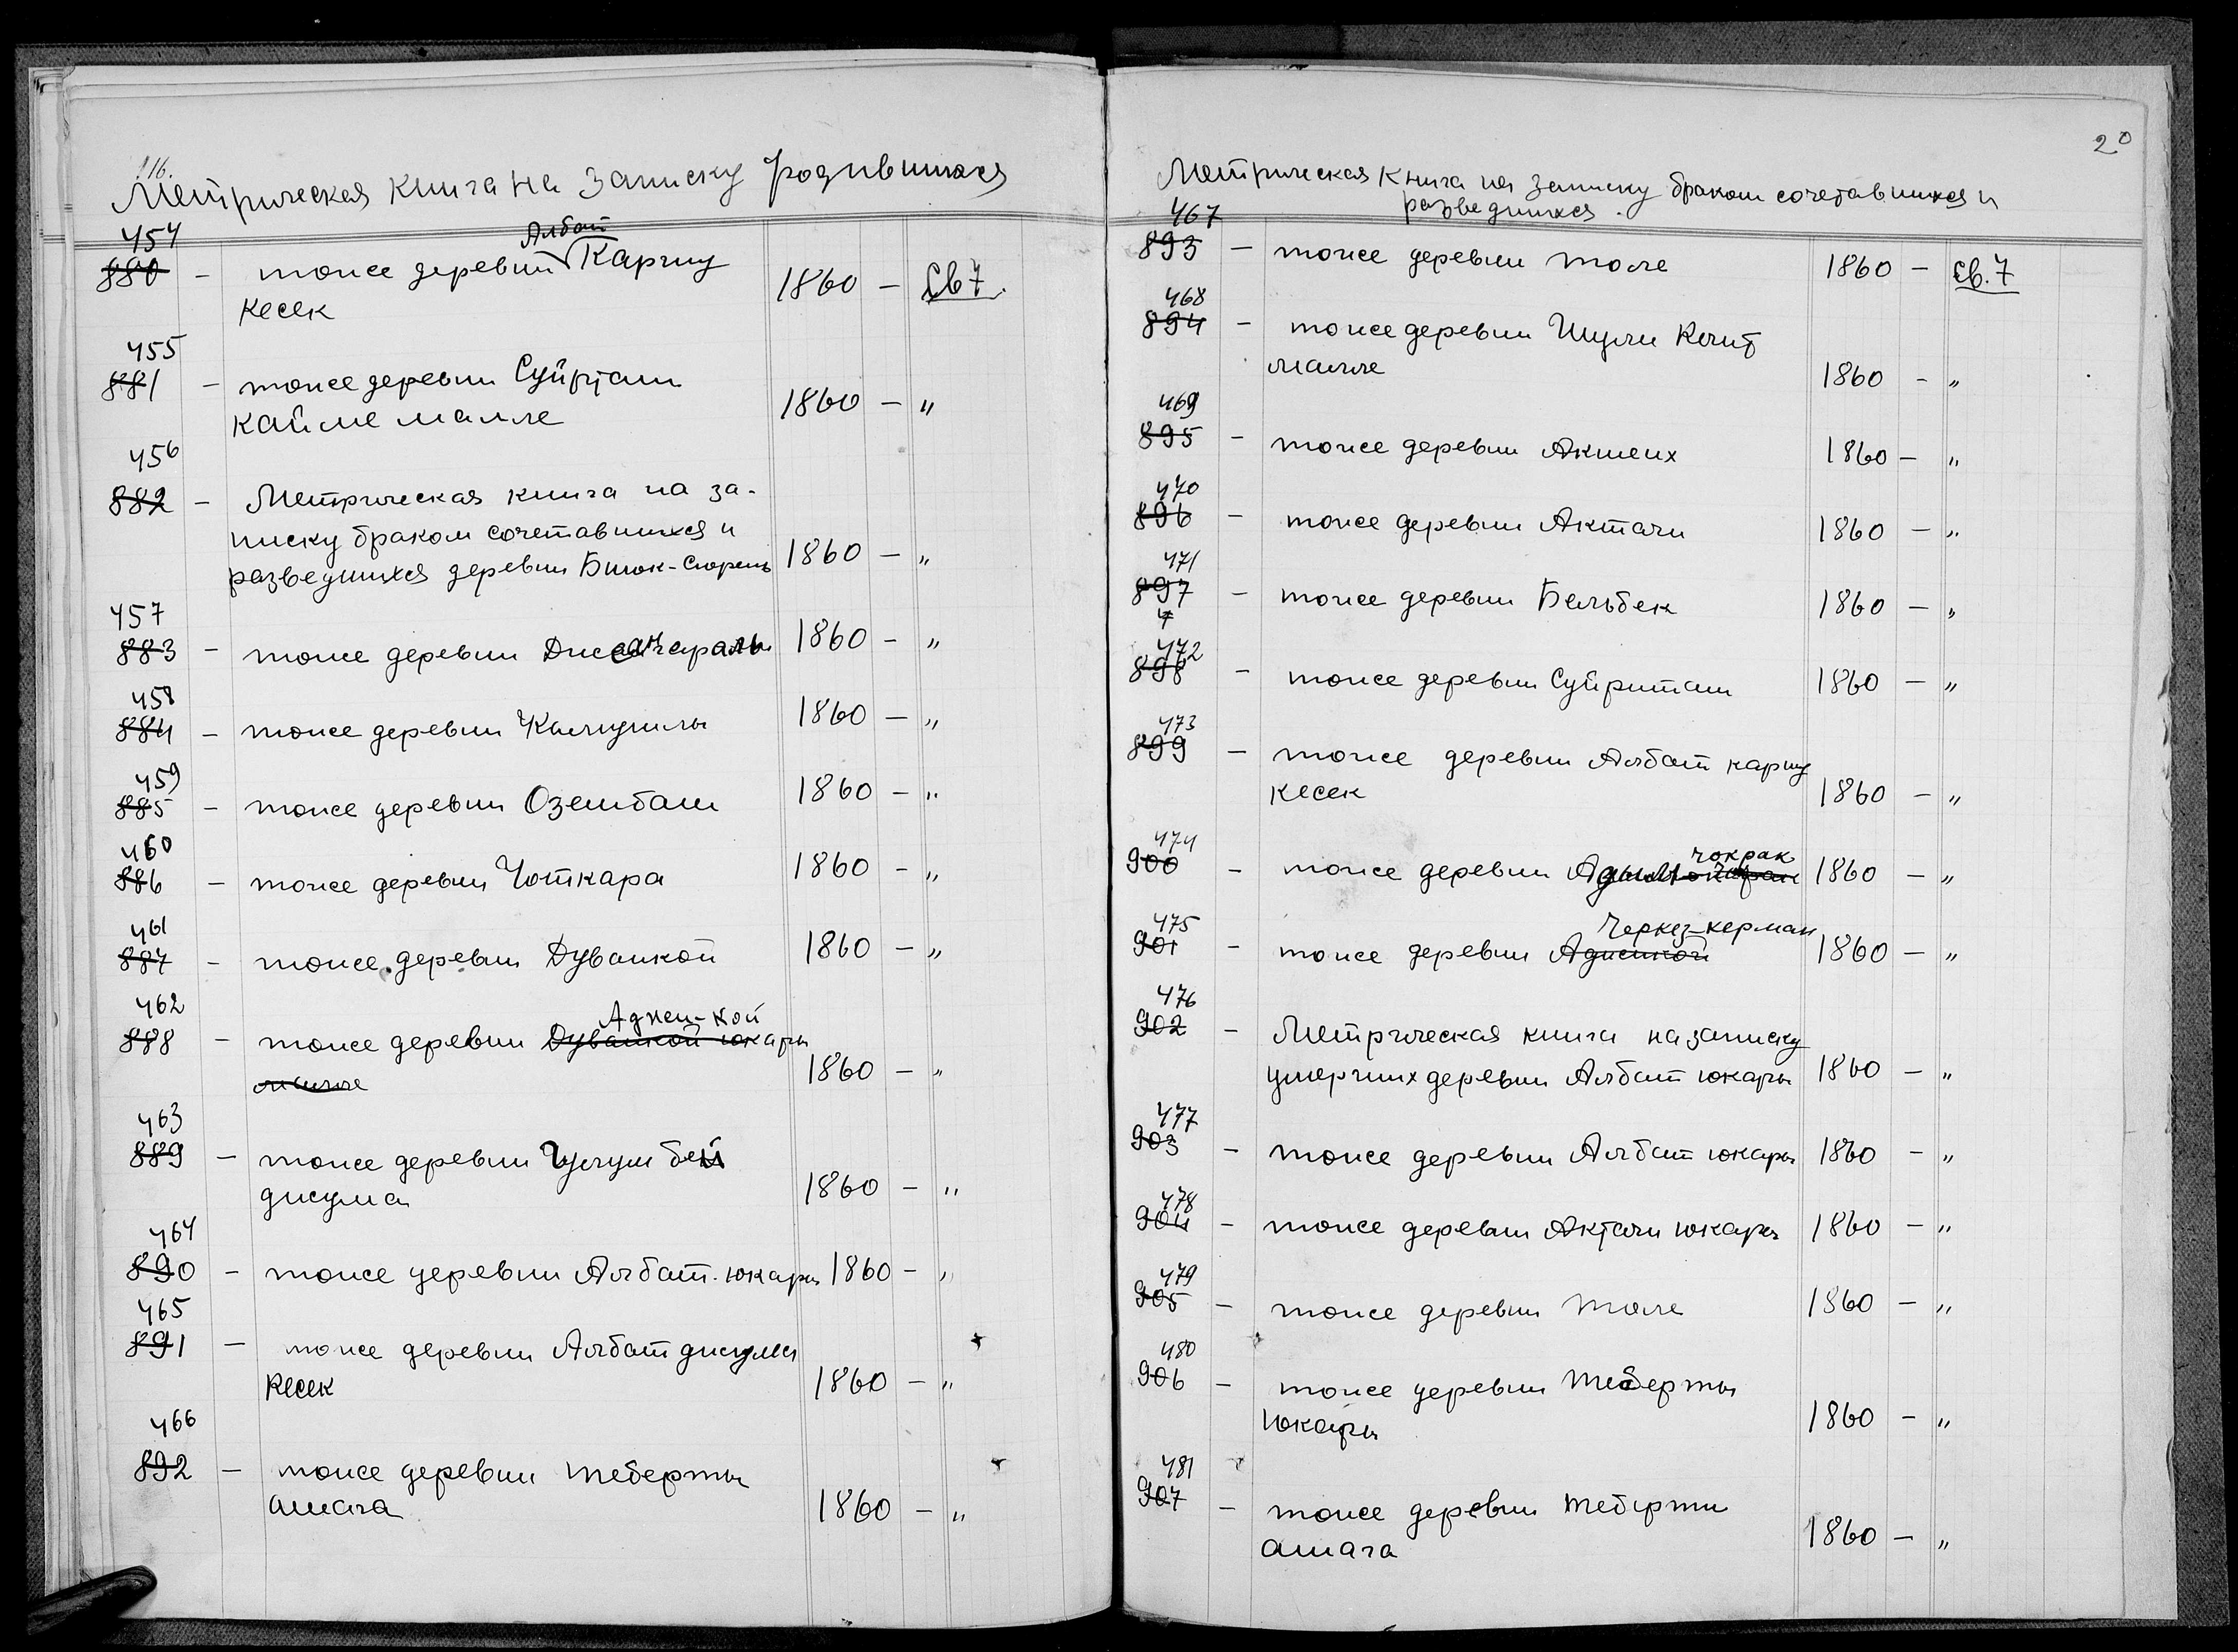 116.
Метрическая книга на записку родившихся
454
880 - тоже деревни Албат Каршу 1860 - Св 7.
кесек
455
881 - тоже деревни Суйрташ
кайме малле 1860 - "
456
882 - Метрическая книга на за-
писку браком сочетавшихся и
разведшихся деревни Биюк-Сюрень 1860 - "
457
883 - тоже деревни 1860 - "
458
884 - тоже деревни 1860 - "
459
885 - тоже деревни Озенбаш 1860 - "
460
886 - тоже деревни Чоткара 1860 - "
461
887 - тоже деревни Дуванкой 1860 - "
462 Аджи-кой
888 - тоже деревни Дуванкой юкары
малле 1860 - "
463
889 - тоже деревни бей
джума 1860 - "
464
890 - тоже деревни Албат. юкары 1860 - "
465
891 - тоже деревни Албат джума
кесек 1860 - "
466
892 - тоже деревни Теберты
ашага 1860 - "
20
Метрическая книга на записку браком сочетавшихся и
разведшихся.
467
893 - тоже деревни Толе 1860 - Св. 7
468
894 - тоже деревни Шули
малле 1860 - "
469
895 - тоже деревни Акшеих 1860 - "
470
896 - тоже деревни Актачи 1860 - "
471
897 - тоже деревни Бельбек 1860 - "
472
898 - тоже деревни Суйриташ 1860 - "
473
899 - тоже деревни Албат каршу
кесек 1860 - "
474 чокрак
900 - тоже деревни 1860 - "
475 Черкез-керман
901 - тоже деревни Аджикой 1860 - "
476
902 - Метрическая книга на записку
умерших деревни Албат юкары 1860 - "
477
903 - тоже деревни Албат юкары 1860 - "
478
904 - тоже деревни Актачи юкары 1860 - "
479
905 - тоже деревни Толе 1860 - "
480
906 - тоже деревни Теберты
юкары 1860 - "
481
907 - тоже деревни Теберти
ашага 1860 - "